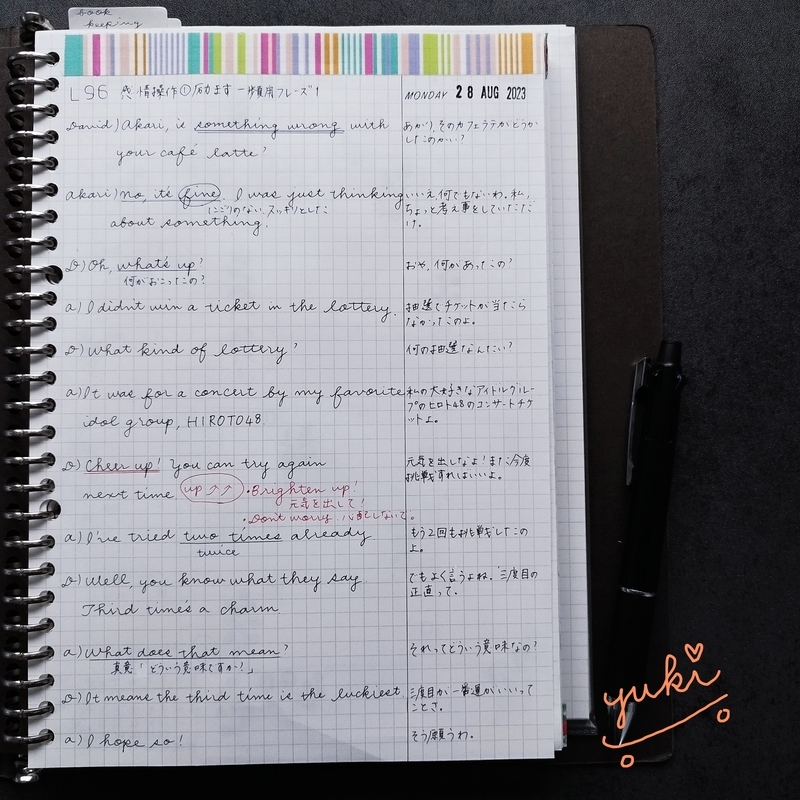 book
keeping
L96 感情操作①励ます－頻用フレーズ1
MONDAY 28 AUG 2023
David) Akari, is something wrong with
your café latte?
あかり、そのカフェラテがどうか
したのかい?
Akari) No, it's fine. I was just thinking
にごりのない、スッキリとした
about something.
いいえ、何でもないわ。私、
ちょっと考え事をしていただ
け。
D) Oh, what's up?
何がおこったの?
おや、何があったの?
a) I didn't win a ticket in the lottery.
抽選でチケットが当たら
なかったのよ。
D) What kind of lottery?
何の抽選なんだい?
a) It was for a concert by my favorite
idol group, HIROTO48.
私の大好きなアイドルグルー
プのヒロト48のコンサートチケ
ットよ。
D) Cheer up! You can try again
next time up↗↗ ・Brighten up!
元気を出して!
・Don't worry. 心配しないで。
元気を出しなよ!また今度
挑戦すればいいよ。
a) I've tried two times already
twice
もう2回も挑戦したの
よ。
D) Well, you know what they say.
Third time's a charm.
でもよく言うよね。「三度目の
正直」って。
a) What does that mean?
真意「どういう意味ですか!」
それってどういう意味なの?
D) It means the third time is the luckiest.
三度目が一番運がいいって
ことさ。
a) I hope so!
そう願うわ。
yuki